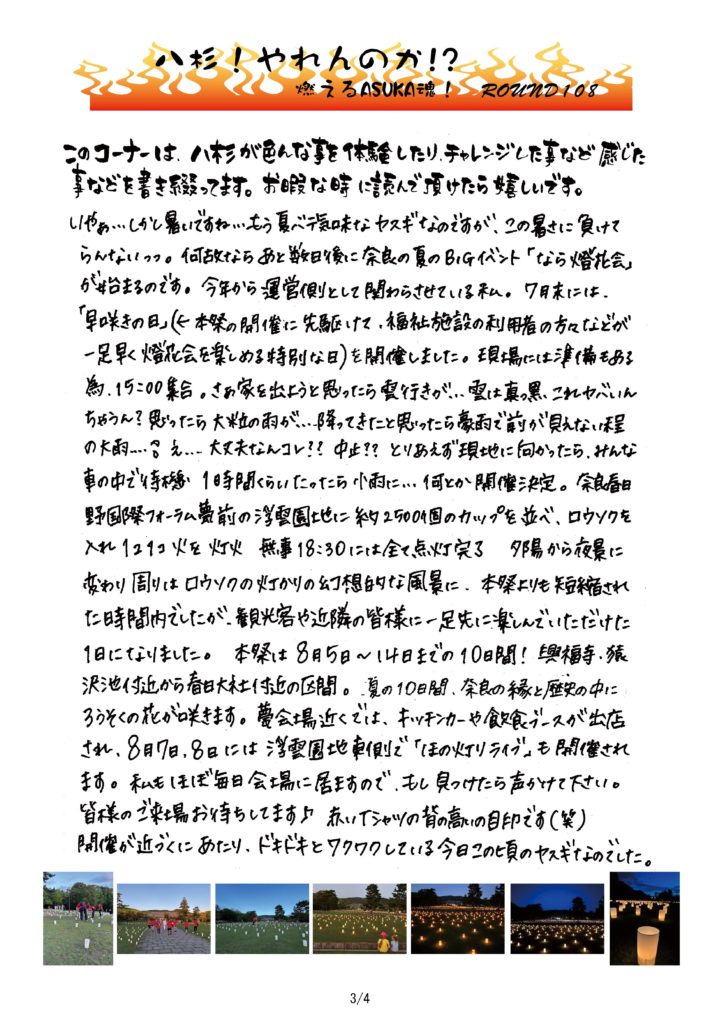 八杉！やれんのか!?
燃えるASUKA魂！ ROUND108
このコーナーは、八杉が色んな事を体験したり、チャレンジした事など感じた
事などを書き綴ってます。お暇な時に読んで頂けたら嬉しいです。
いやぁ…しかし暑いですね…もう夏バテ気味なヤスギなのですが、この暑さに負けて
らんないっっ。何故ならあと数日後に奈良の夏のBIGイベント「なら燈花会」
が始まるのです。今年から運営側として関わらさせている私。7月末には、
「早咲きの日」(←本祭の開催に先駆けて、福祉施設の利用者の方々などが
一足早く燈花会を楽しめる特別な日)を開催しました。現場には準備もある
為、15:00集合。さぁ家を出ようと思ったら雲行きが…雲は真っ黒、これヤバいん
ちゃうん?思ったら大粒の雨が…降ってきたと思ったら豪雨で前が見えない程
の大雨…え、え…大丈夫なんコレ??中止??とりあえず現地に向かったら、みんな
車の中で待機 1時間くらいたったら小雨に…何とか開催決定。奈良春日
野国際フォーラム甍前の浮雲園地に約2500個のカップを並べ、ロウソクを
入れ1コ1コ火を灯火 無事18:30には全て点灯完了 夕陽から夜景に
変わり周りはロウソクの灯かりの幻想的な風景に、本祭よりも短縮され
た時間内でしたが、観光客や近隣の皆様に一足先に楽しんでいただけた
1日になりました。本祭は8月5日～14日までの10日間!興福寺、猿
沢池付近から春日大社付近の区間。夏の10日間、奈良の縁と歴史の中に
ろうそくの花が咲きます。甍会場近くでは、キッチンカーや飲食ブースが出店
され、8月7日,8日には浮雲園地東側で「ほの灯りライブ」も開催され
ます。私もほぼ毎日会場に居ますので、もし見つけたら声かけて下さい。
皆様のご来場お待ちしてます♪ 赤いTシャツの背の高いの目印です(笑)
開催が近づくにあたり、ドキドキとワクワクしている今日この頃のヤスギなのでした。
3/4